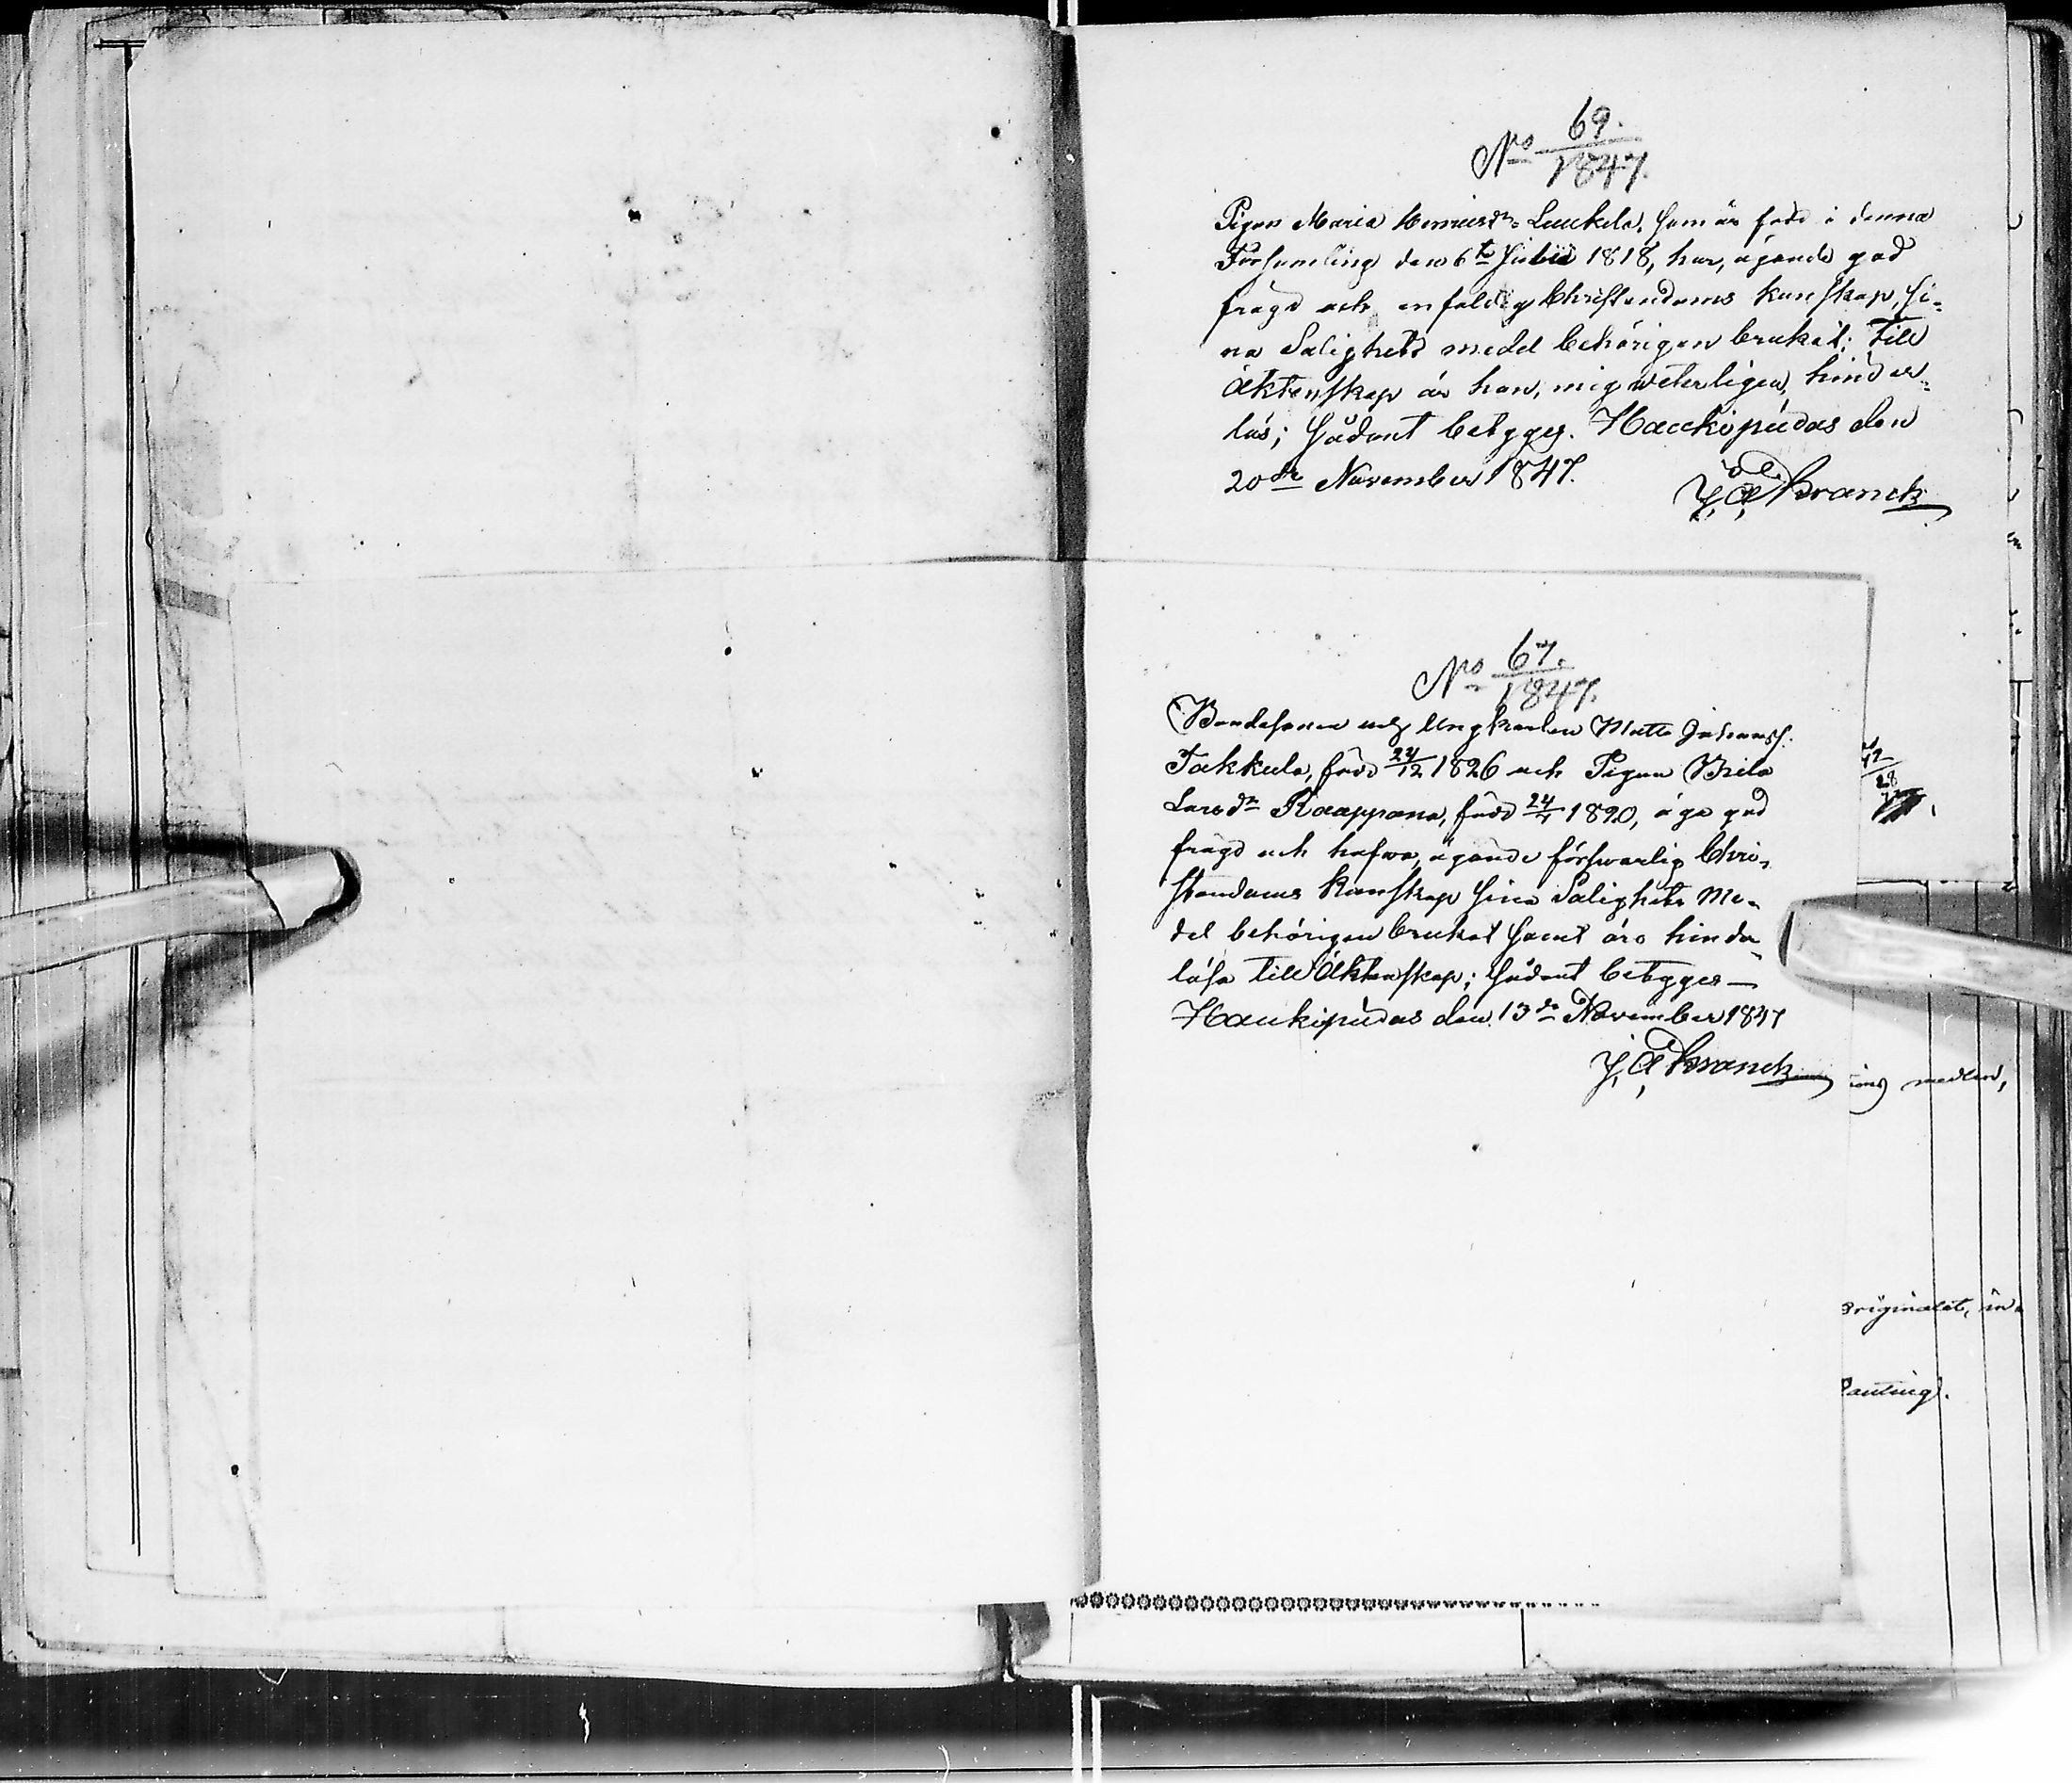 No 69.
1847.
Pigan Maria Henriksdr Luukela, som är född i denna
Församling den 6te Julii 1818, har, ägande god
frägd och enfaldig Christendoms kunskap, si-
na Salighets medel behörigen brukat; till
Äktenskap är hon, mig veterligen, hinder-
lös; sådant betyges. Haukipudas den
20de November 1847.
J. A. Kranck
No 67.
1847.
Bondesonen och Ungkarlen Matts Johanss.
Takkula, född 24/12 1826 och Pigan Brita
Larsdr Kaappana, född 24/1 1820, äga god
frägd och hafwa, ägande förswarlig Chri-
stendoms kunskap sina Salighets Me-
del behörigen brukat samt äro hinder-
lösa till Äktenskap; sådant betyges
Haukipudas den 13de November 1847
J. A. Kranck
medlem,
originalet, in-